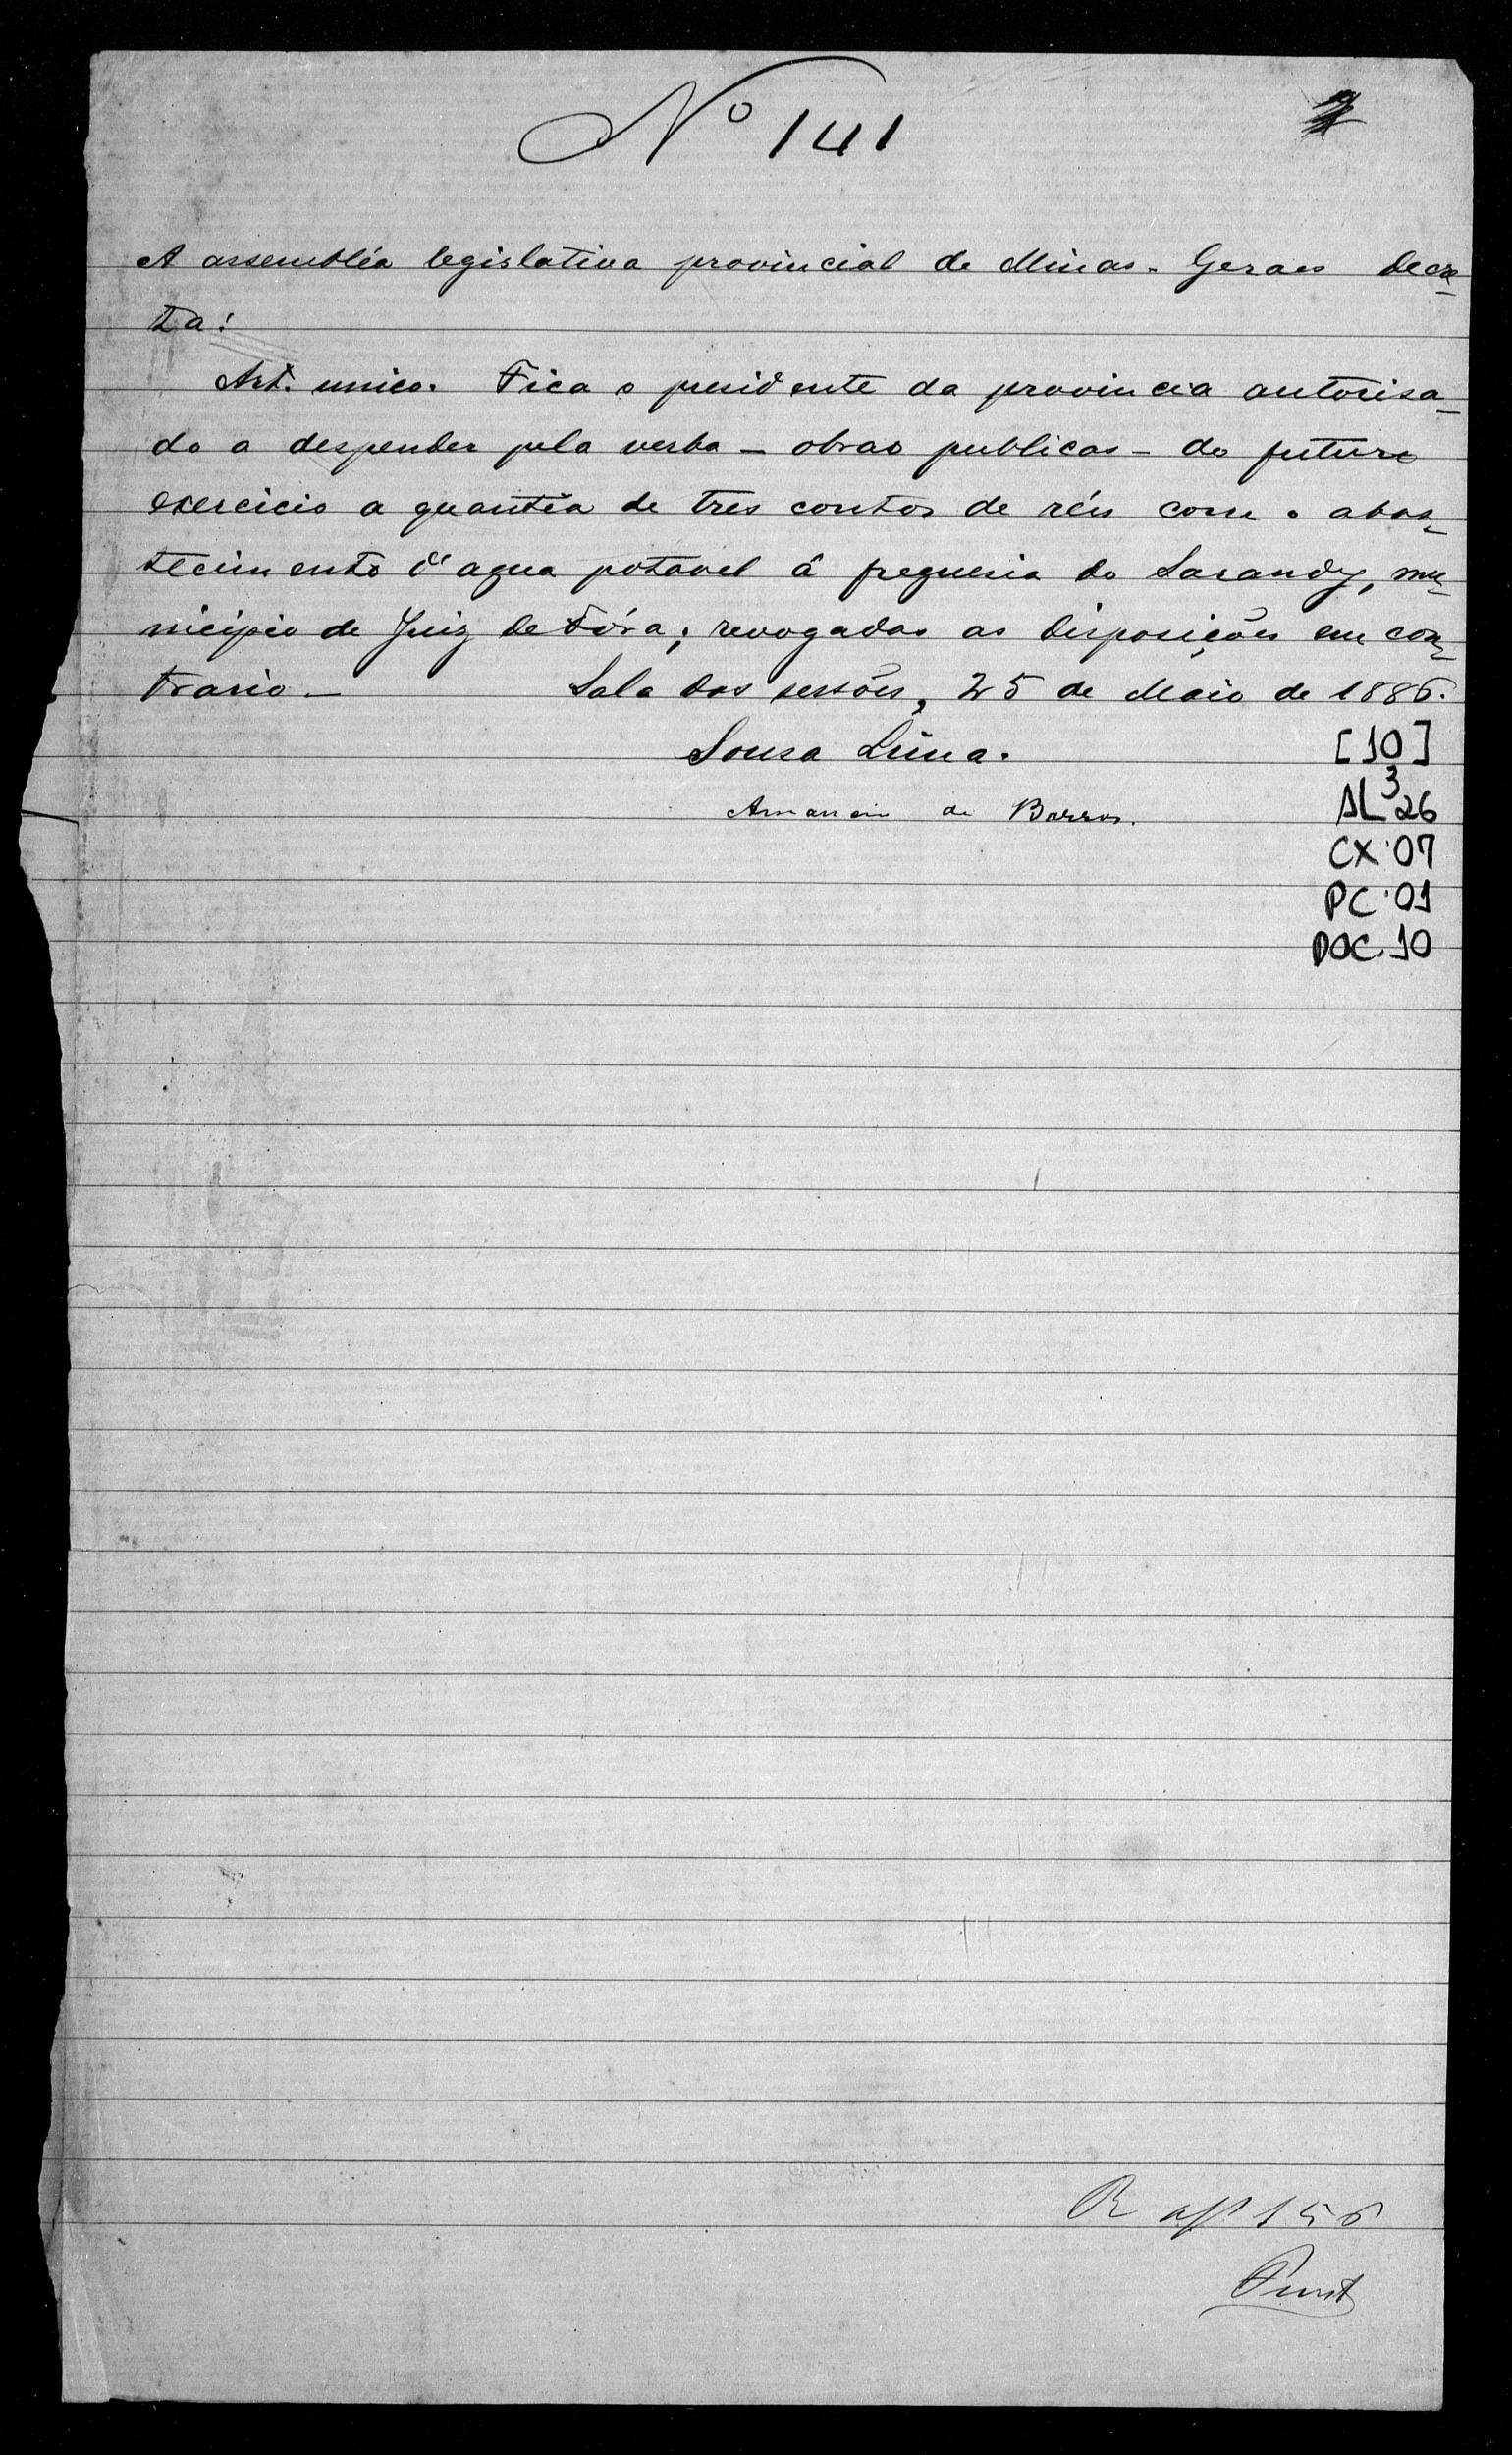 Nº 141
A assembléa legislativa provincial de Minas-Geraes decre-
ta:
Art. unico. Fica o presidente da provincia autorisa-
do a despender pela verba - obras publicas - do futuro
exercicio a quantia de tres contos de réis com o abas-
tecimento d'agua potavel á freguesia do Sarandy, mu-
nicipio de Juiz de Fóra; revogadas as disposições em con-
trario - Sala das sessões, 25 de Maio de 1886.
Sousa Lima.
Amancio de Barros.
[10]
AL 3 26
CX. 07
PC. 01
DOC. 10
R 156